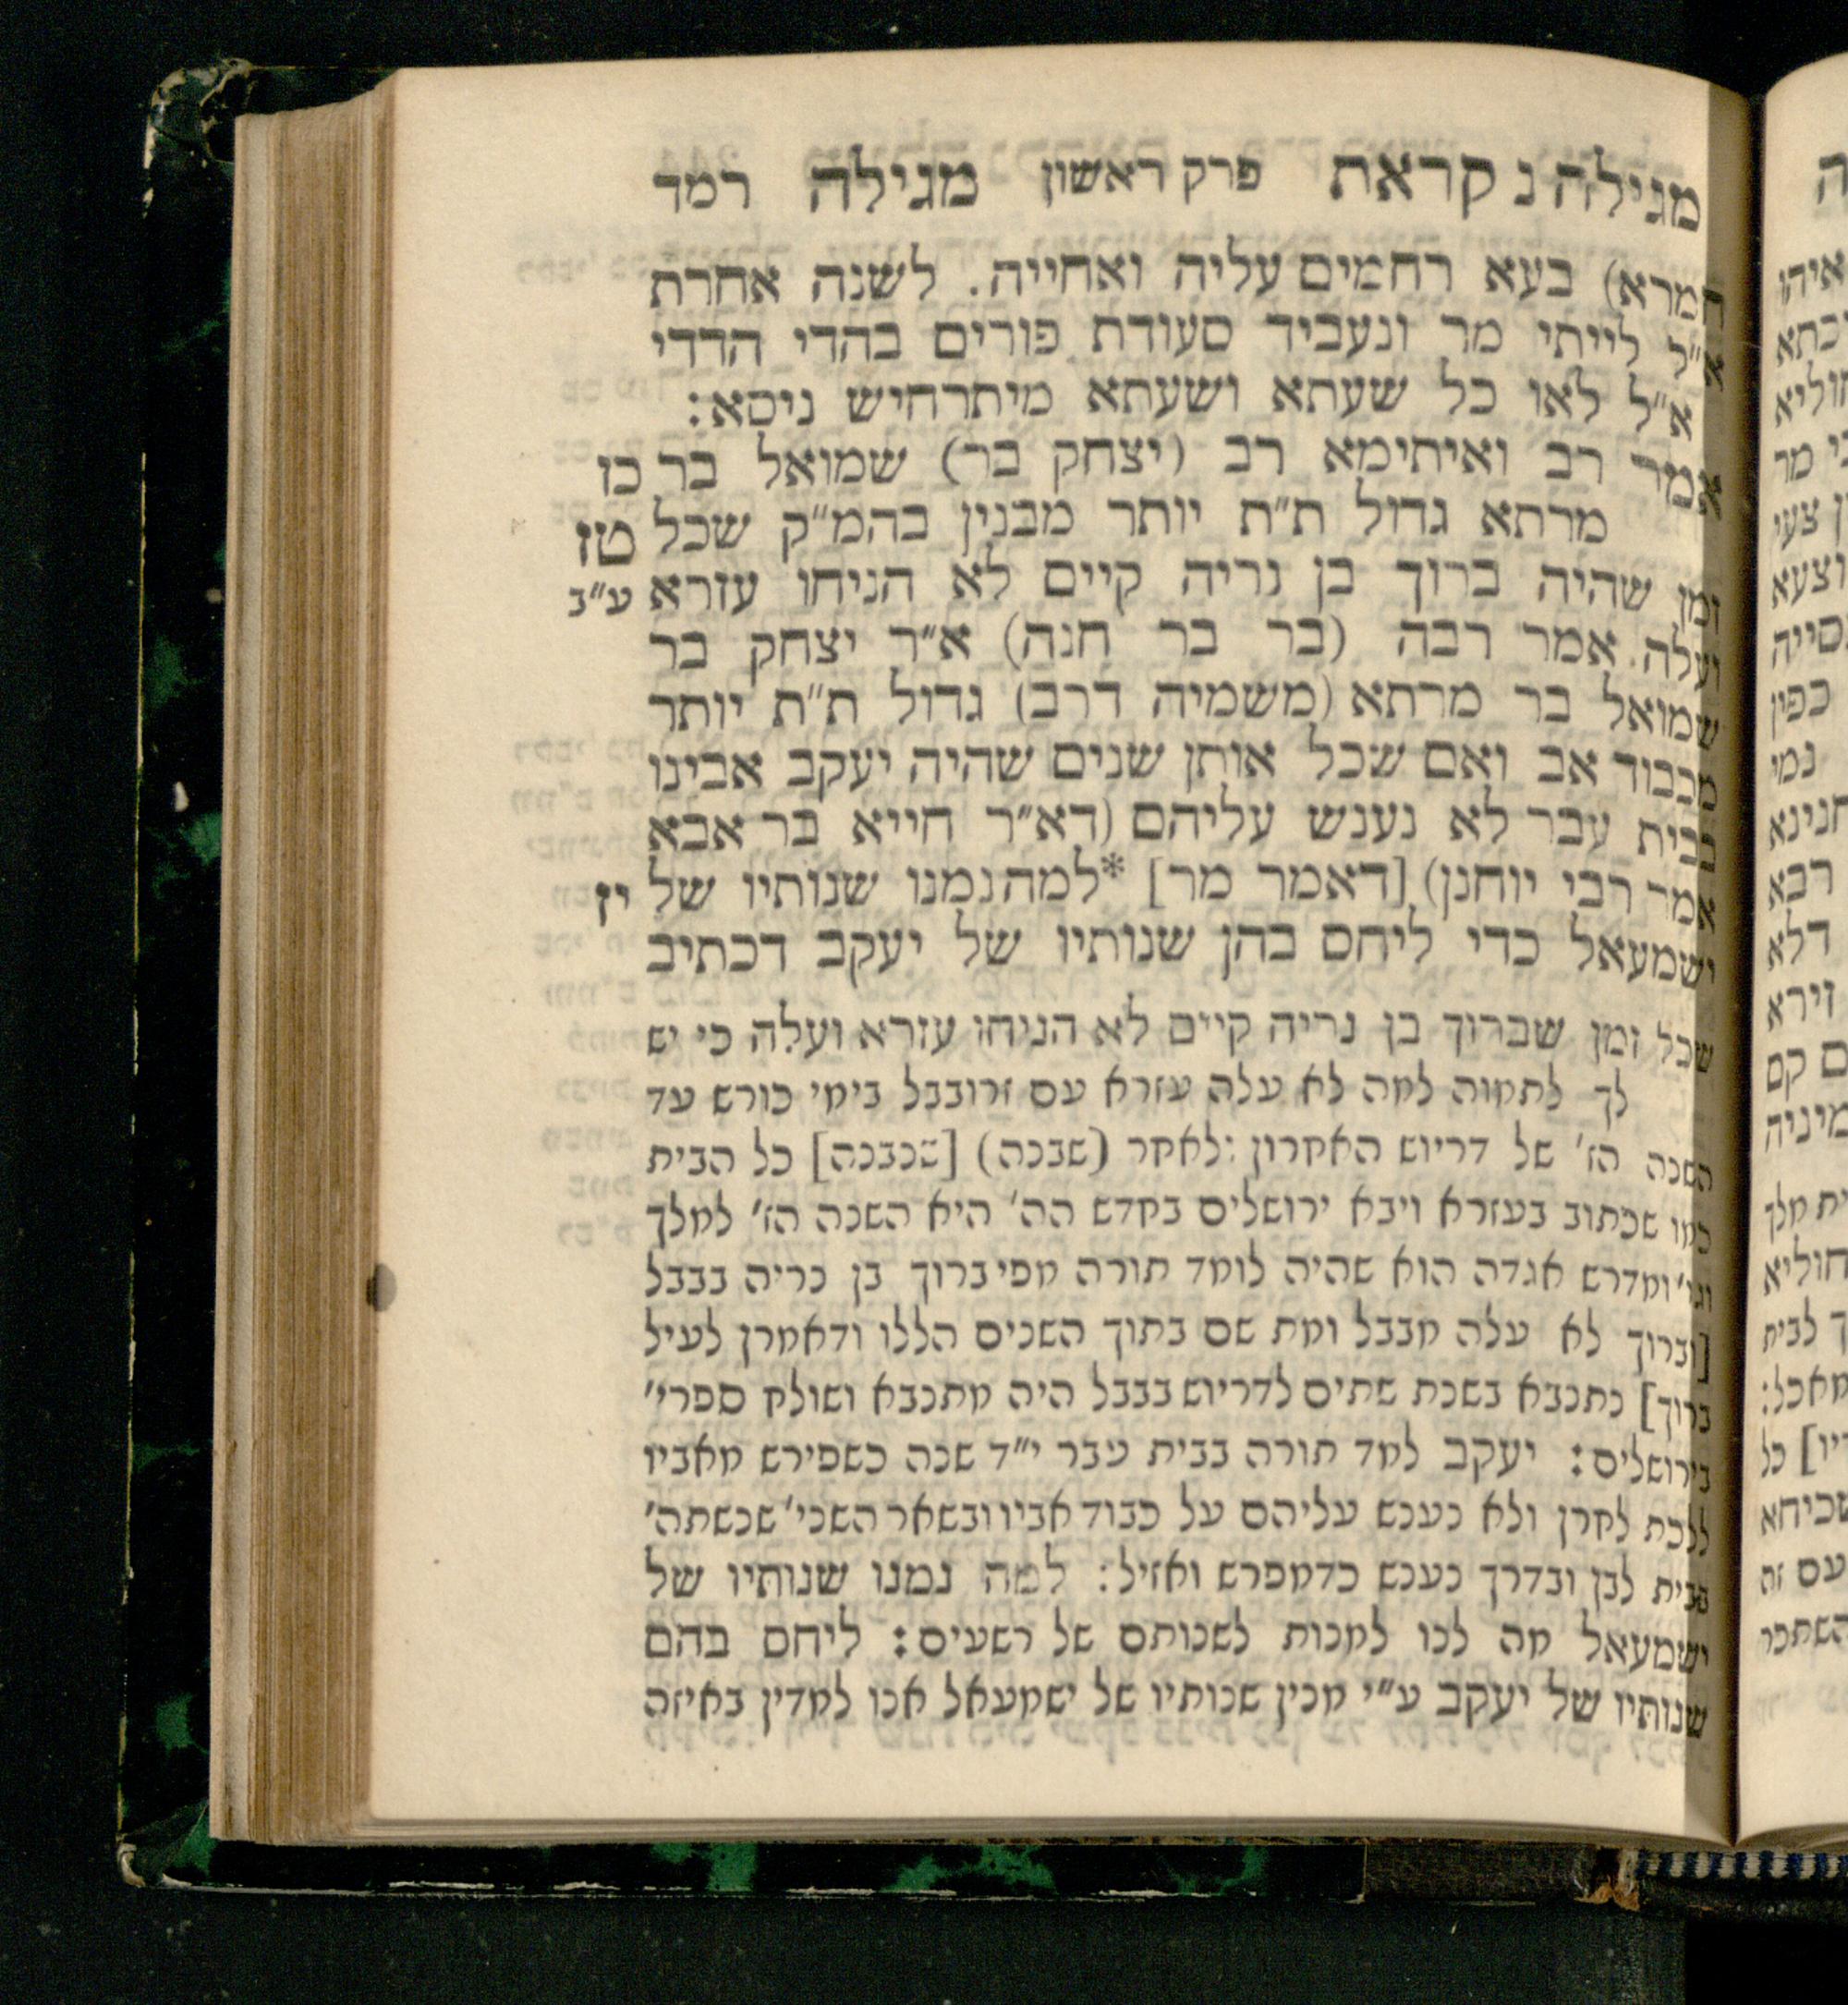 מגילה נקראת פרק ראשון מגילה רמד
חמרא) בעא רחמים עליה ואחייה. לשנה אחרת
א"ל לייתי מר ונעביד סעודת פורים בהדי הדדי
א"ל לאו כל שעתא ושעתא מיתרחיש ניסא:
אמר רב ואיתימא רב (יצחק בר) שמואל בר כז
מרתא גדול ת"ת יותר מבנין בהמ"ק שכל טז
זמן שהיה ברוך בן נריה קיים לא הניחו עזרא ע"ב
ועלה. אמר רבה (בר בר חנה) א"ר יצחק בר
שמואל בר מרתא (משמיה דרב) גדול ת"ת יותר
מכבוד אב ואם שכל אותן שנים שהיה יעקב אבינו
בבית עבר לא נענש עליהם (דא"ר חייא בר אבא
אמר רבי יוחנן) [דאמר מר] *למה נמנו שנותיו של יז
ישמעאל כדי ליחס בהן שנותיו של יעקב דכתיב
שכל זמן שברוך בן נריה קיים לא הניחו עזרא ועלה כי יש
לך לתמוה למה לא עלה עזרא עם זרובבל בימי כורש עד
השנה הז' של דריוש האחרון לאחר (שבנה) [שנבנה] כל הבית
כמו שכתוב בעזרא ויבא ירושלים בחדש הה' היא השנה הז' למלך
וגו' ומדרש אגדה הוא שהיה לומד תורה מפי ברוך בן נריה בבבל
[וברוך לא עלה מבבל ומת שם בתוך השנים הללו ודאמרן לעיל
ברוך] נתנבא בשנת שתים לדריוש בבבל היה מתנבא ושולח ספרי'
בירושלים: יעקב למד תורה בבית עבר י"ד שנה כשפירש מאביו
ללכת לחרן ולא נענש עליהם על כבוד אביו ובשאר השני' שנשתה'
בבית לבן ובדרך נענש כדמפרש ואזיל: למה נמנו שנותיו של
ישמעאל מה לנו למנות לשנותם של רשעים: ליחס בהם
שנותיו של יעקב ע"י מנין שנותיו של ישמעאל אנו למדין באיזה